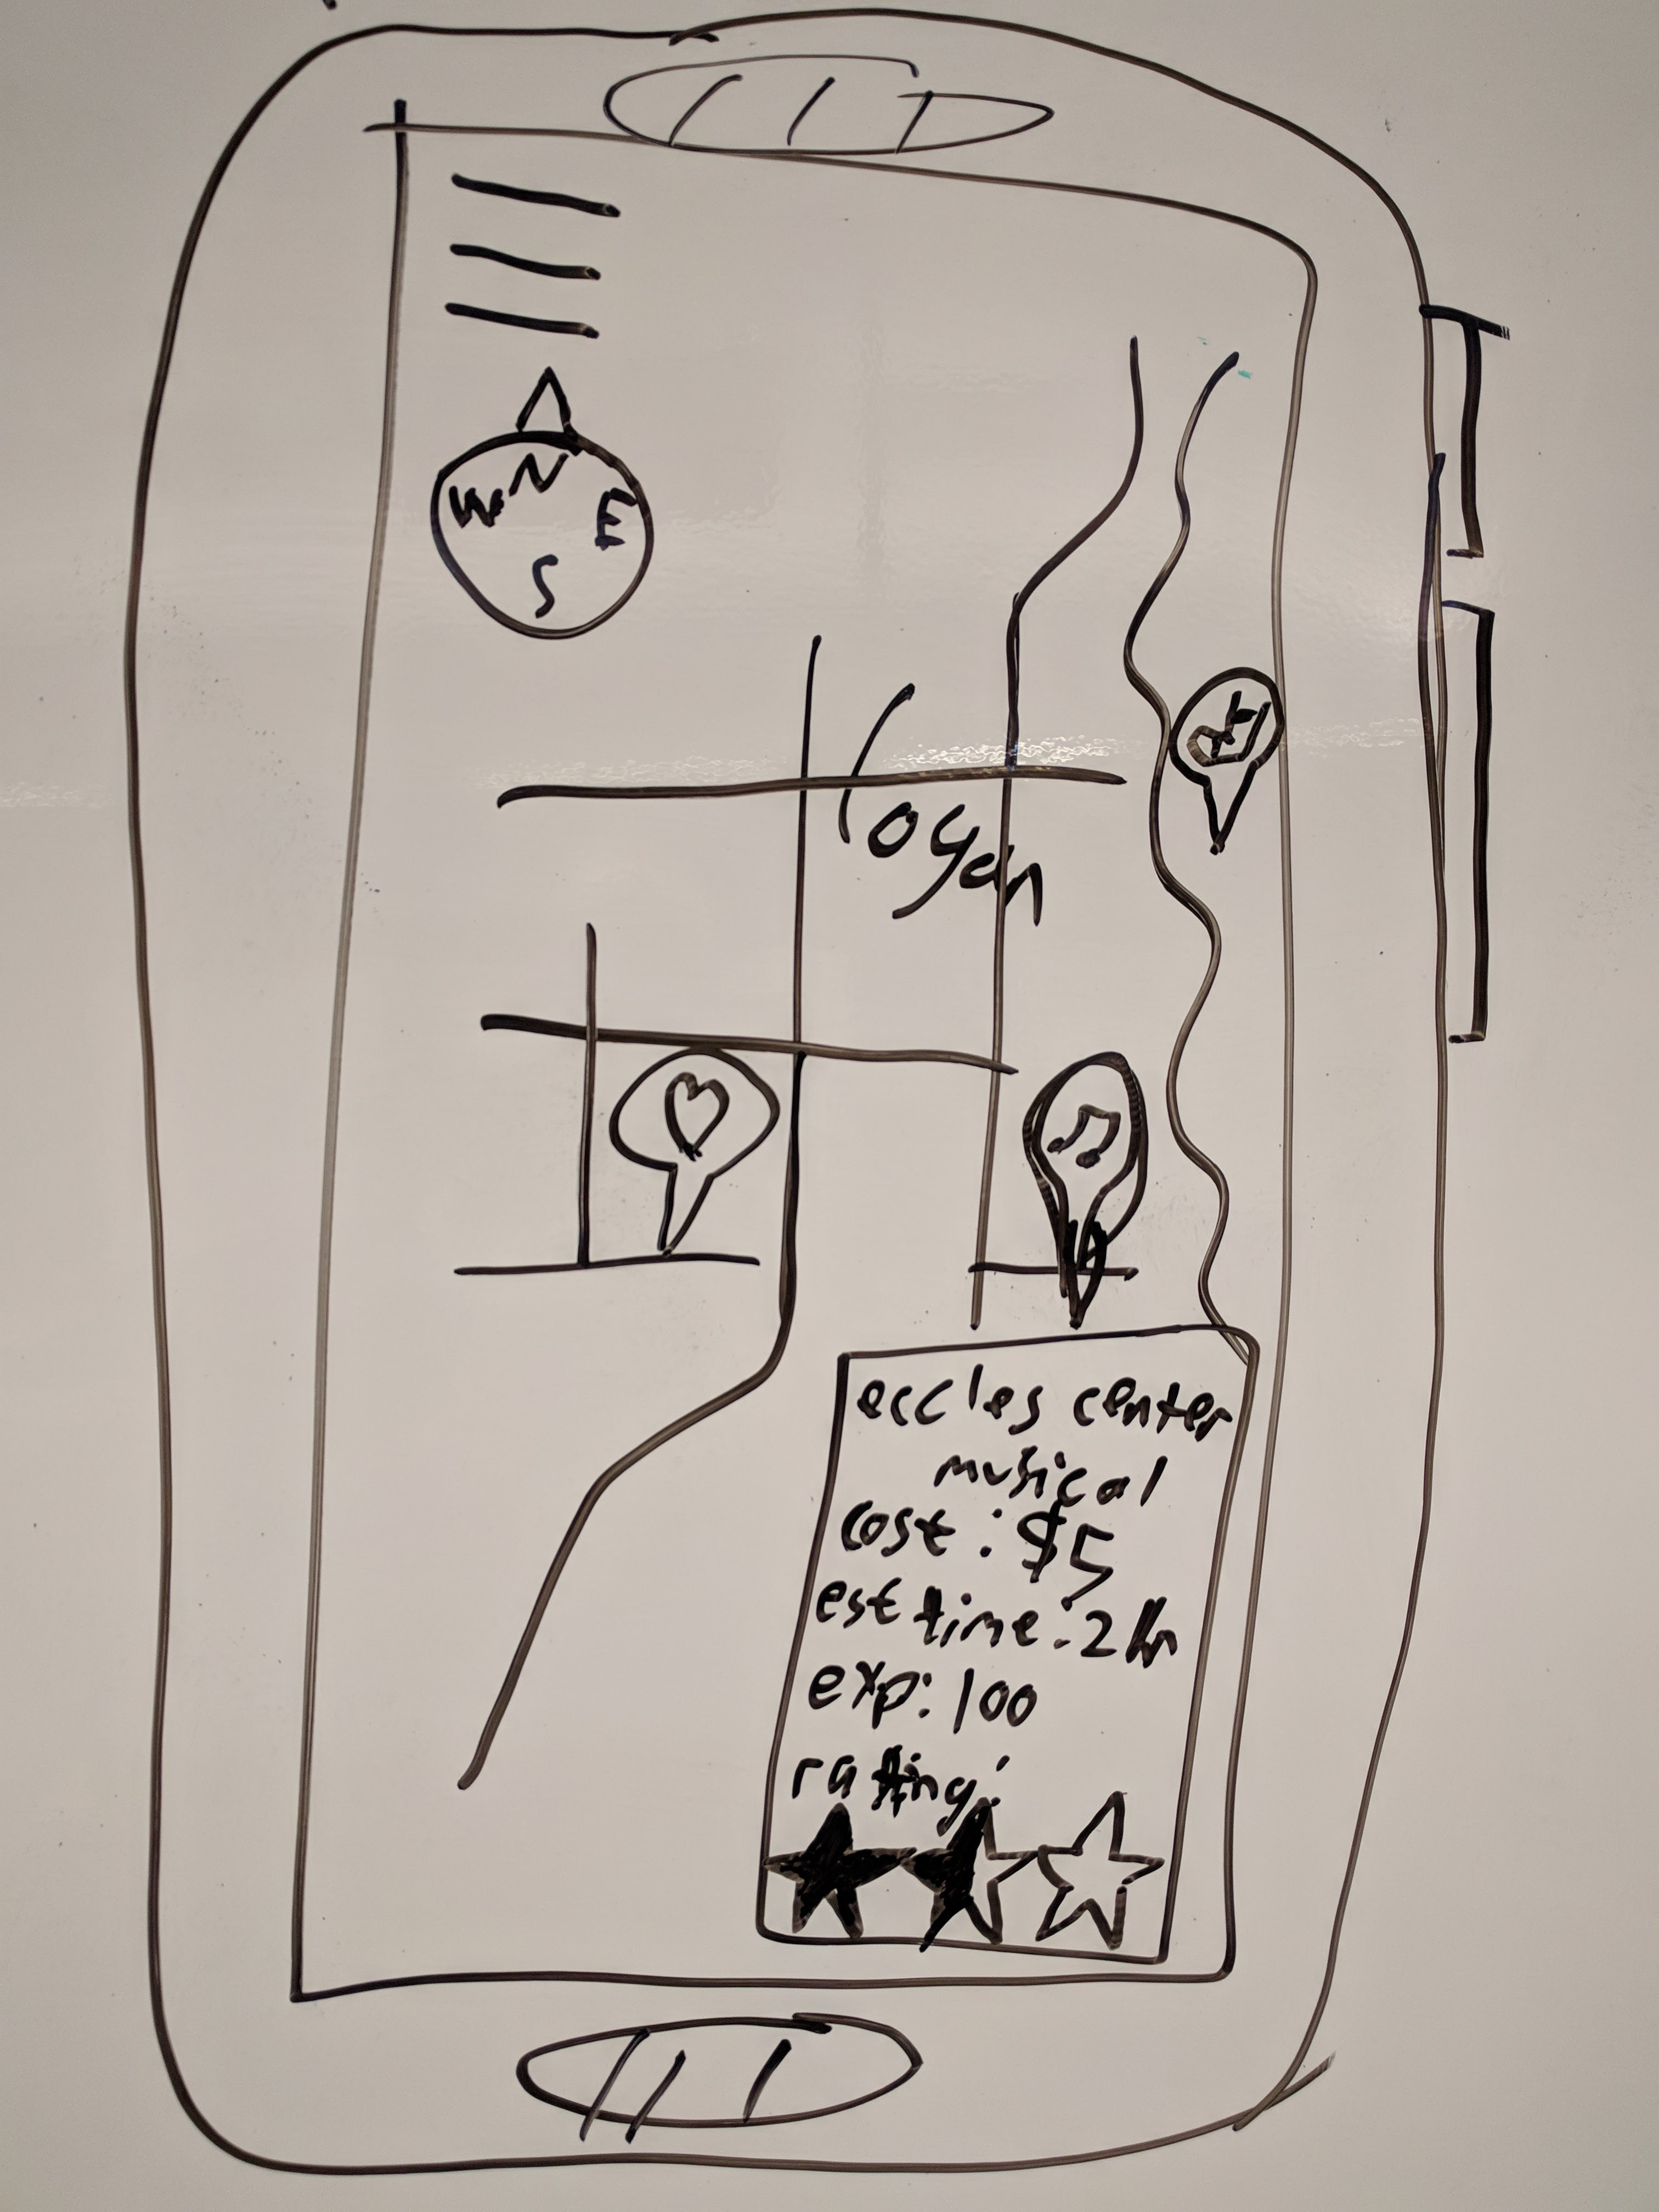 N
W E
S
logan
eccles center
musical
cost: $5
est time: 2 hr
exp: 100
rating: